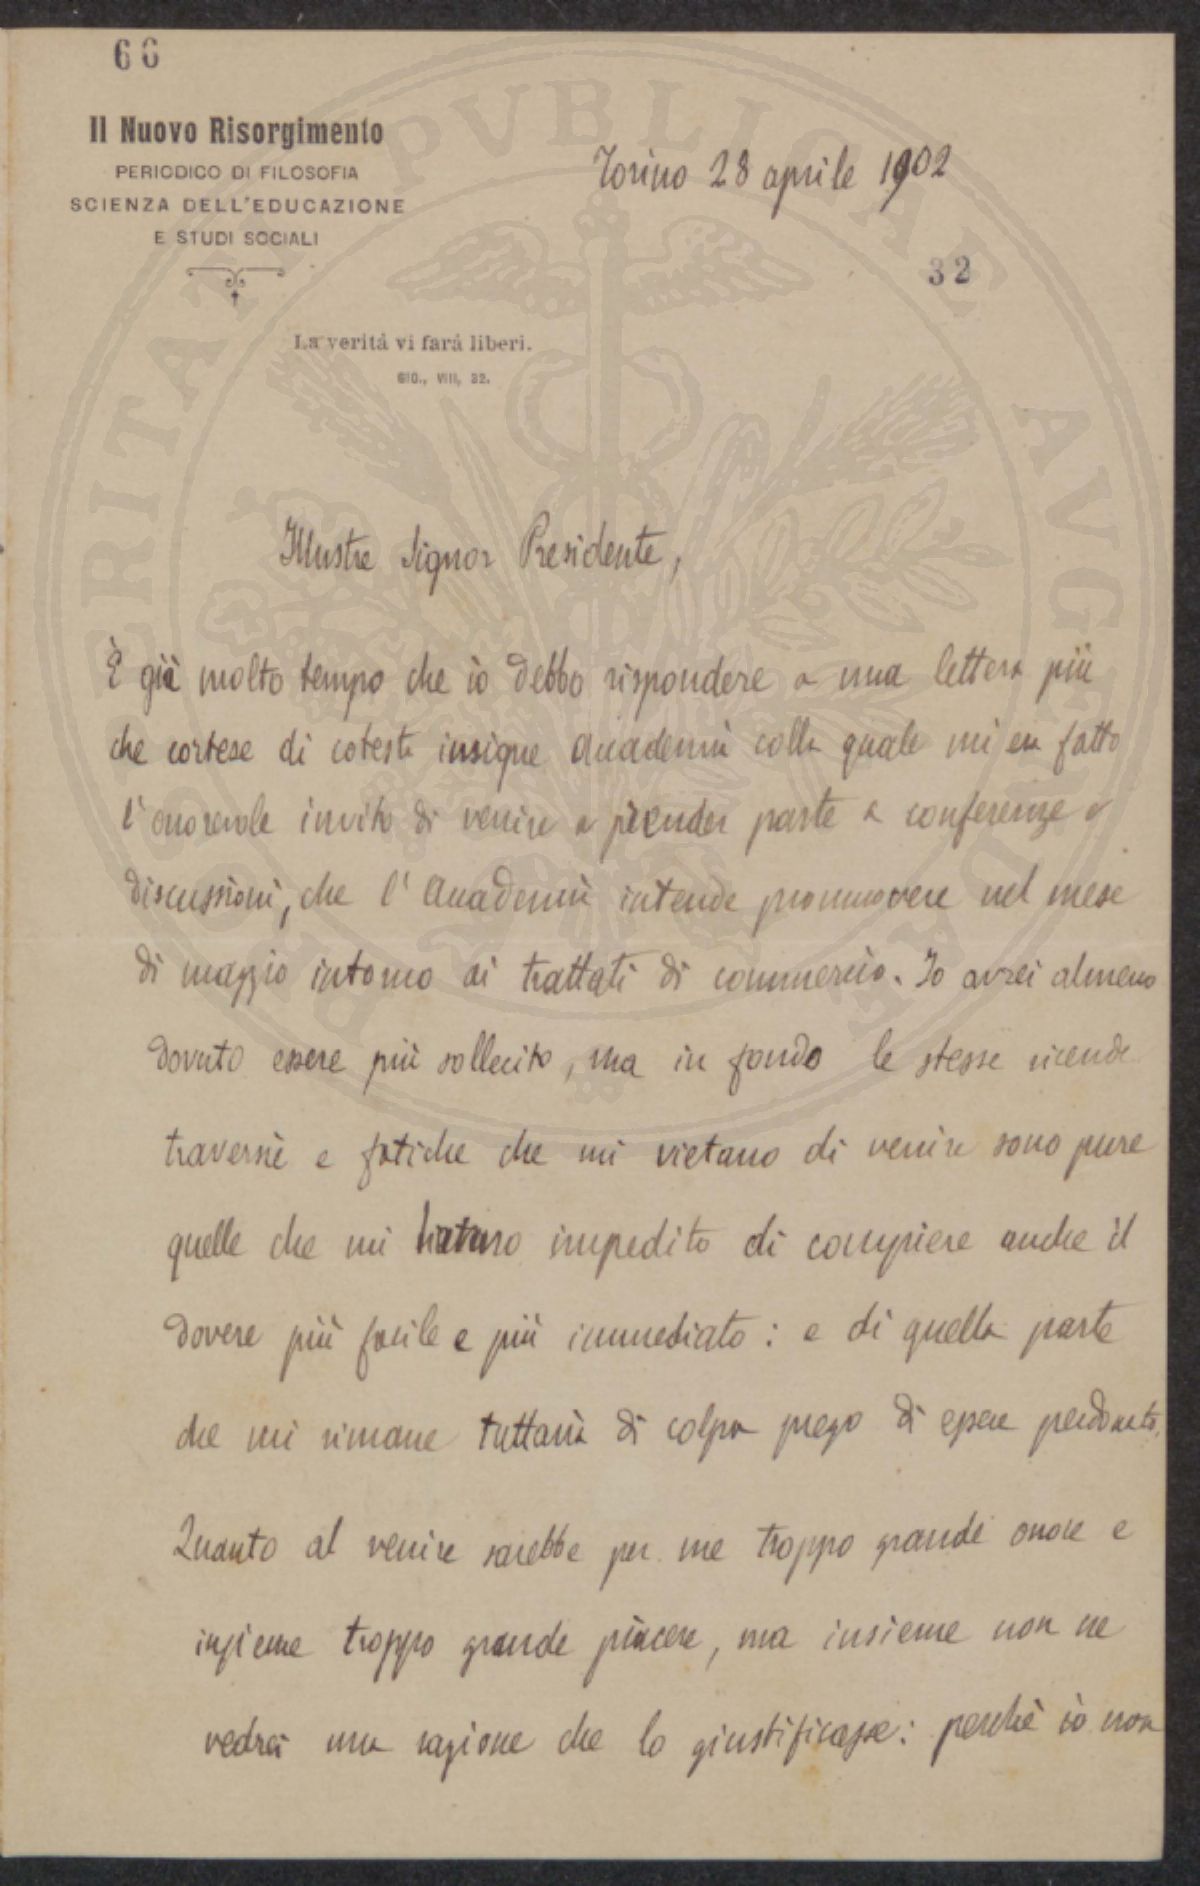 66
Il Nuovo Risorgimento
PERIODICO DI FILOSOFIA
SCIENZA DELL'EDUCAZIONE
E STUDI SOCIALI
Torino 28 aprile 1902
32
La veritá vi fará liberi.
GIO., VIII, 32.
PROSPERITATI PVBLICAE AVGENDAE
Illustre Signor Presidente,
È già molto tempo che io debbo rispondere a una lettera più
che cortese di cotesta insigne Accademia colla quale mi era fatto
l'onorevole invito di venire a prender parte a conferenze e
discussioni, che l'Accademia intende promuovere nel mese
di maggio intorno ai trattati di commercio. Io avrei almeno
dovuto essere più sollecito, ma in fondo le stesse vicende
traversie e fatiche che mi vietano di venire sono pure
quelle che mi impedito di compiere anche il
dovere più facile e più immediato: e di quella parte
che mi rimane tuttavia di colpa prego di essere perdonato.
Quanto al venire sarebbe per me troppo grande onore e
insieme troppo grande piacere, ma insieme non ne
vedrei una ragione che lo giustificasse: perchè io non